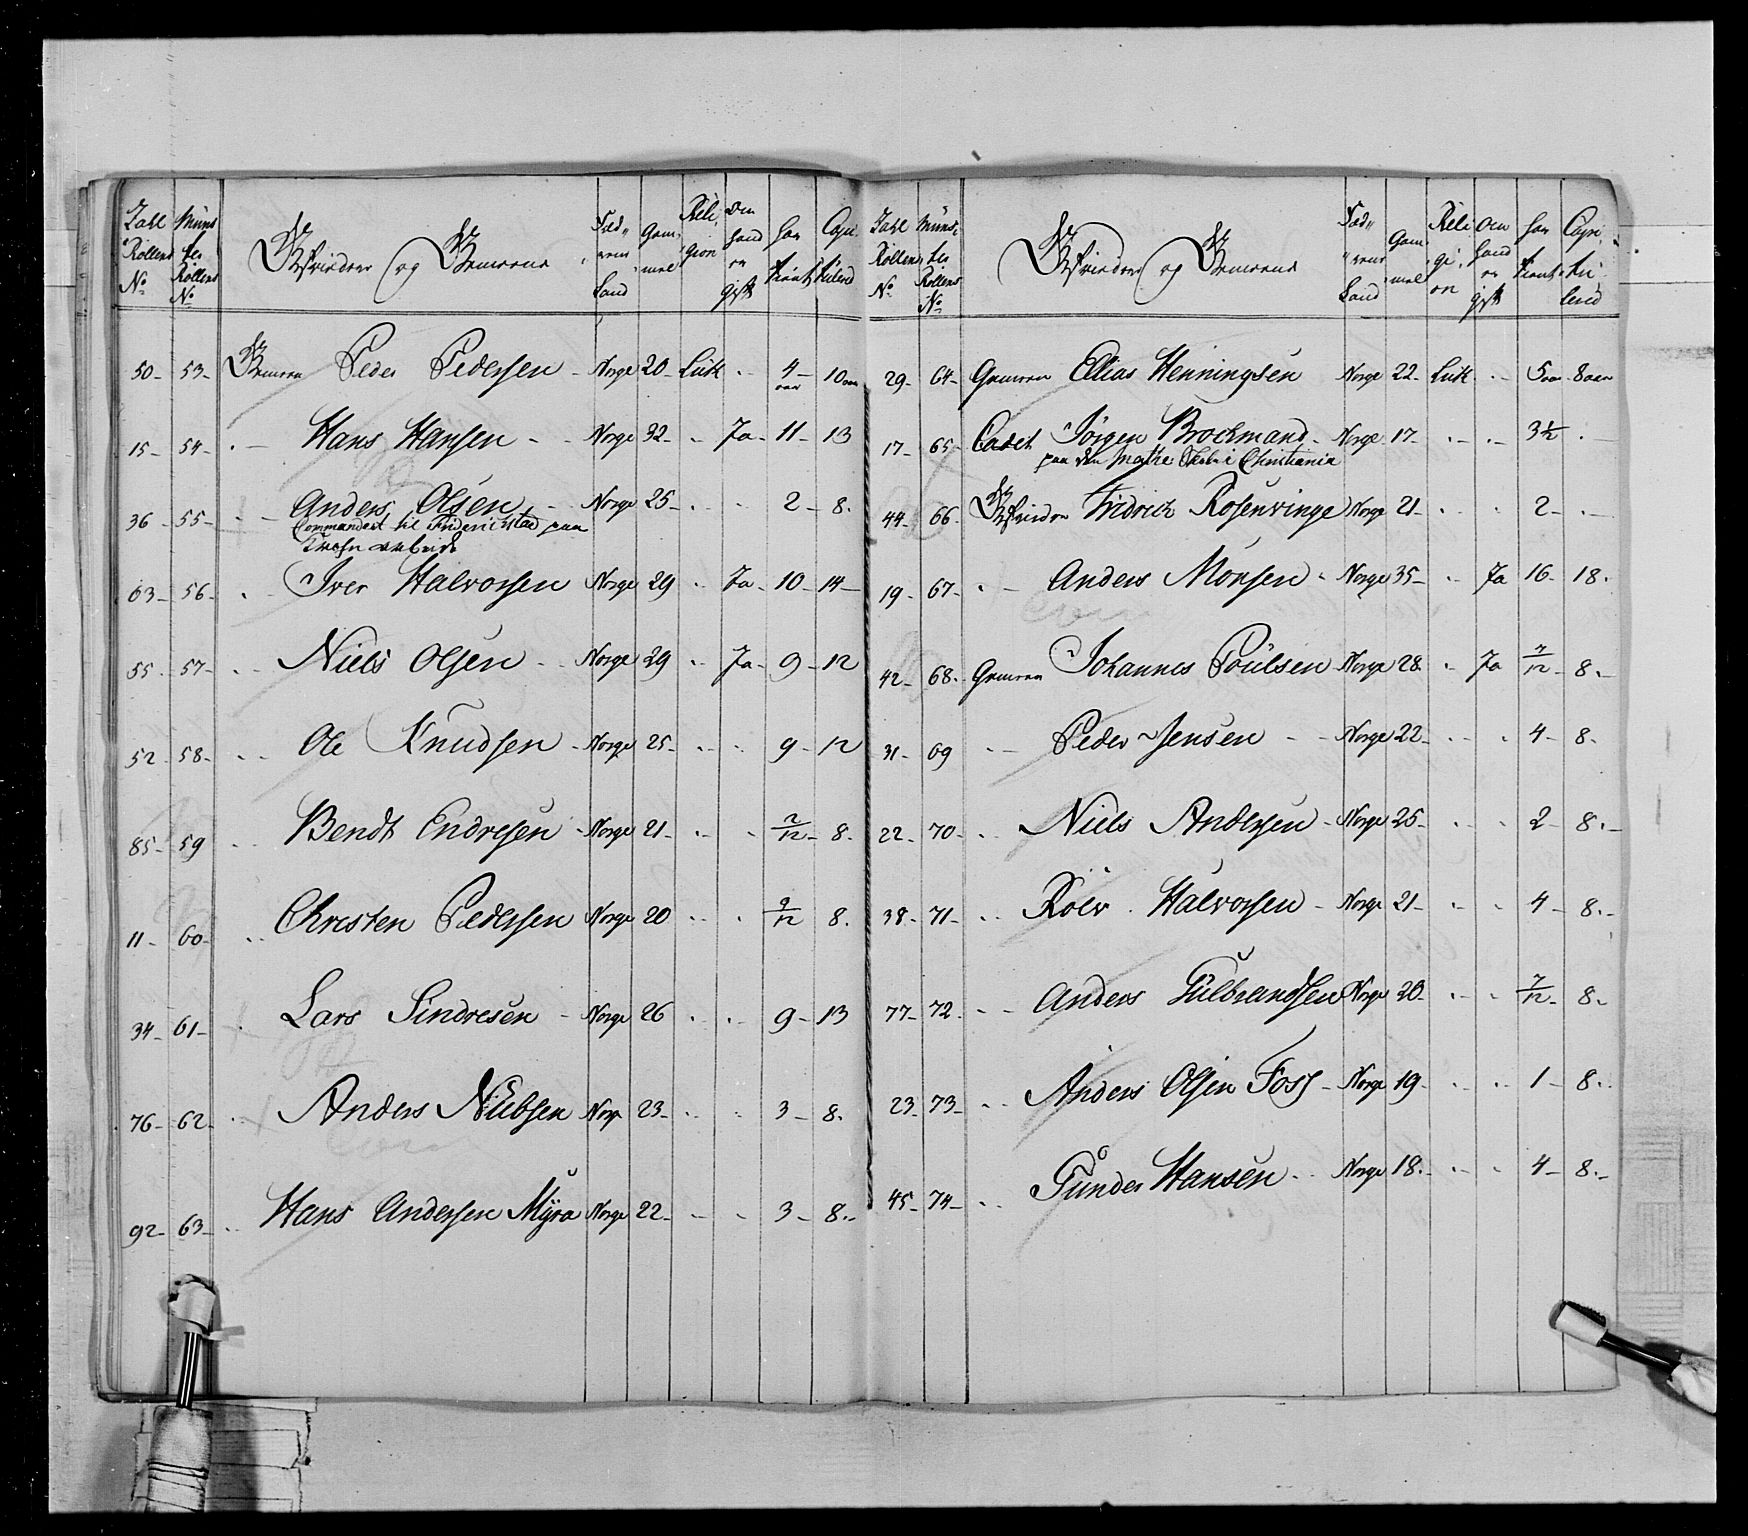 Zahl Rollens No | Münster Rollens No | Befrieder og Gemeene | Fæderne Land | Gammel | Religion | Om hand er gift | har tient | Capitulered
50 - 53 - Gemeen Peder Pedersen - Norge 20 Luth - 4 aar 10 aar
15 - 54 - Hans Hansen - Norge 32 - Ja - 11 - 13
36 - 55 - Anders Olsen - Norge 25 - 2 - 8
Commandert til Friderichstad paa
arbeide
63 - 56 - Iver Halvorsen Norge 29 Ja - 10 - 14
55 - 57 - Niels Olsen - Norge 29 Ja - 9 - 12
52 - 58 - Ole Knudsen - Norge 25 - 9 - 12
85 - 59 Bendt Endresen - Norge 21 - 2/12 - 8
11 - 60 - Christen Pedersen Norge 20 9/12 8
34 - 61 - Lars Sindresen - Norge 26 9 - 13
76 - 62 - Anders Nielsen Norge 23 - 3 - 8
92 - 63 - Hans Andersen Myra Norge 22 - 3 - 8
Zahl Rollens No | Münster Rollens No | Befrieder og Gemeene | Fæderne Land | Gammel | Religion | Om hand er gift | har tient | Capitulered
29 - 64 - Gemeen Ellias Henningsen Norge 22 - Luth - 5 aar 8 aar
17 - 65 - Cadet Jörgen Brockmand - Norge 17 - 3½
paa den Mathe Skole i Christiania
44 - 66 - Fridrich Rosenvinge Norge 21 - 2 -
19 - 67 - Anders Monsen - Norge 35 - Ja 16 - 18
42 - 68 - Gemeen Johannes Poulsen Norge 28 Ja 7/12 - 8
31 - 69 Peder Jensen - Norge 22 - 4 - 8
22 - 70 - Niels Andersen - Norge 25 - 2 - 8
38 - 71 - Rolv Halvorsen - Norge 21 - 4 - 8
77 - 72 - Anders Gulbrandsen Norge 20 - 7/12 - 8
23 - 73 - Anders Olsen Foss - Norge 19 - 1 - 8
45 - 74 - Gunder Hansen - Norge 18 - 4 - 8